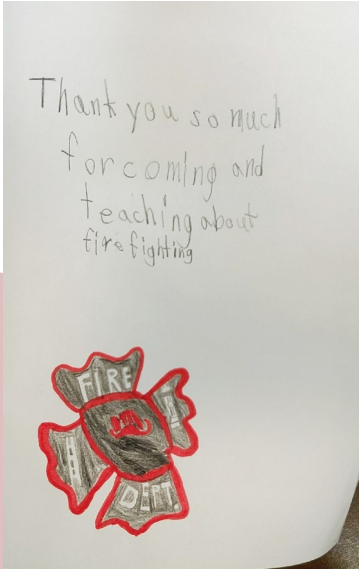 Thank you so much
for coming and
teaching about
fire fighting
FIRE
DEPT.